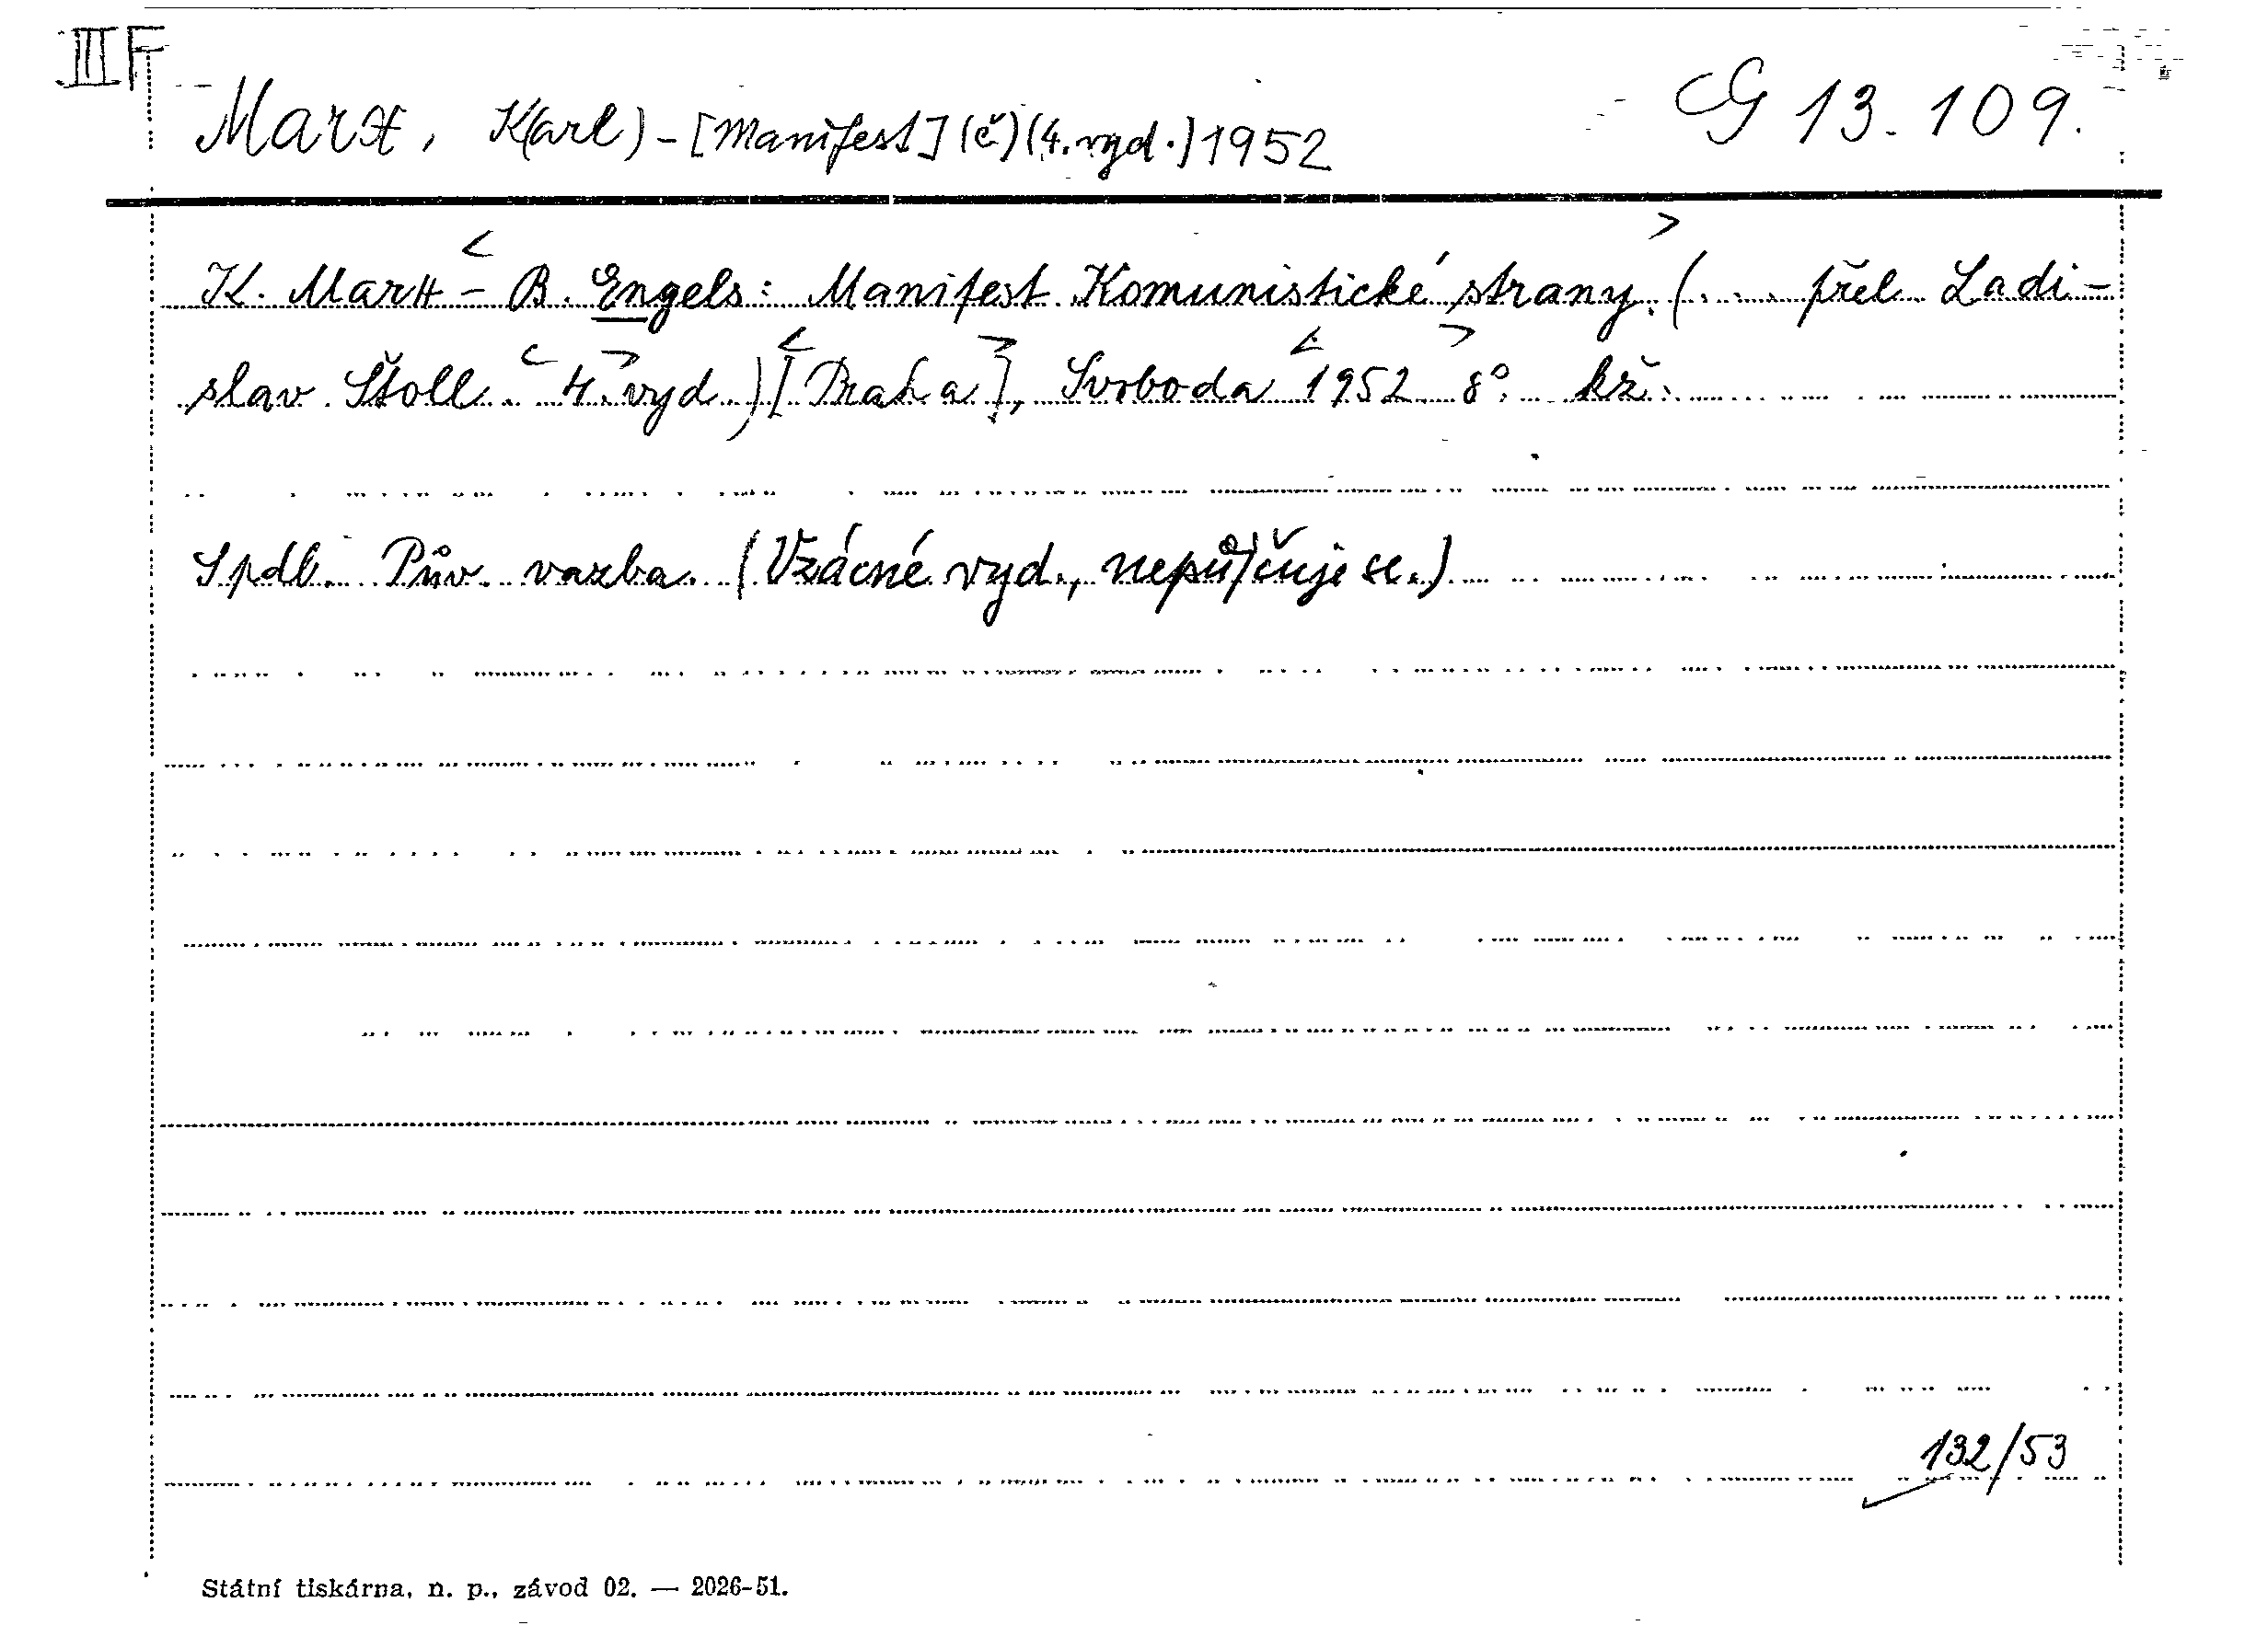 III F
Marx, K(arl) - [Manifest] (č) (4. vyd.) 1952
G 13.109.
K. Marx < - B. Engels: Manifest Komunistické strany. > (... přel. Ladi-
slav Štoll. < 4. > vyd.) < [Praha] >, Svoboda < 1952 > 8°. kž.
Spdb. Pův. vazba. (Vzácné vyd., nepůjčuje se.)
132/53
Státní tiskárna, n. p., závod 02. — 2026-51.